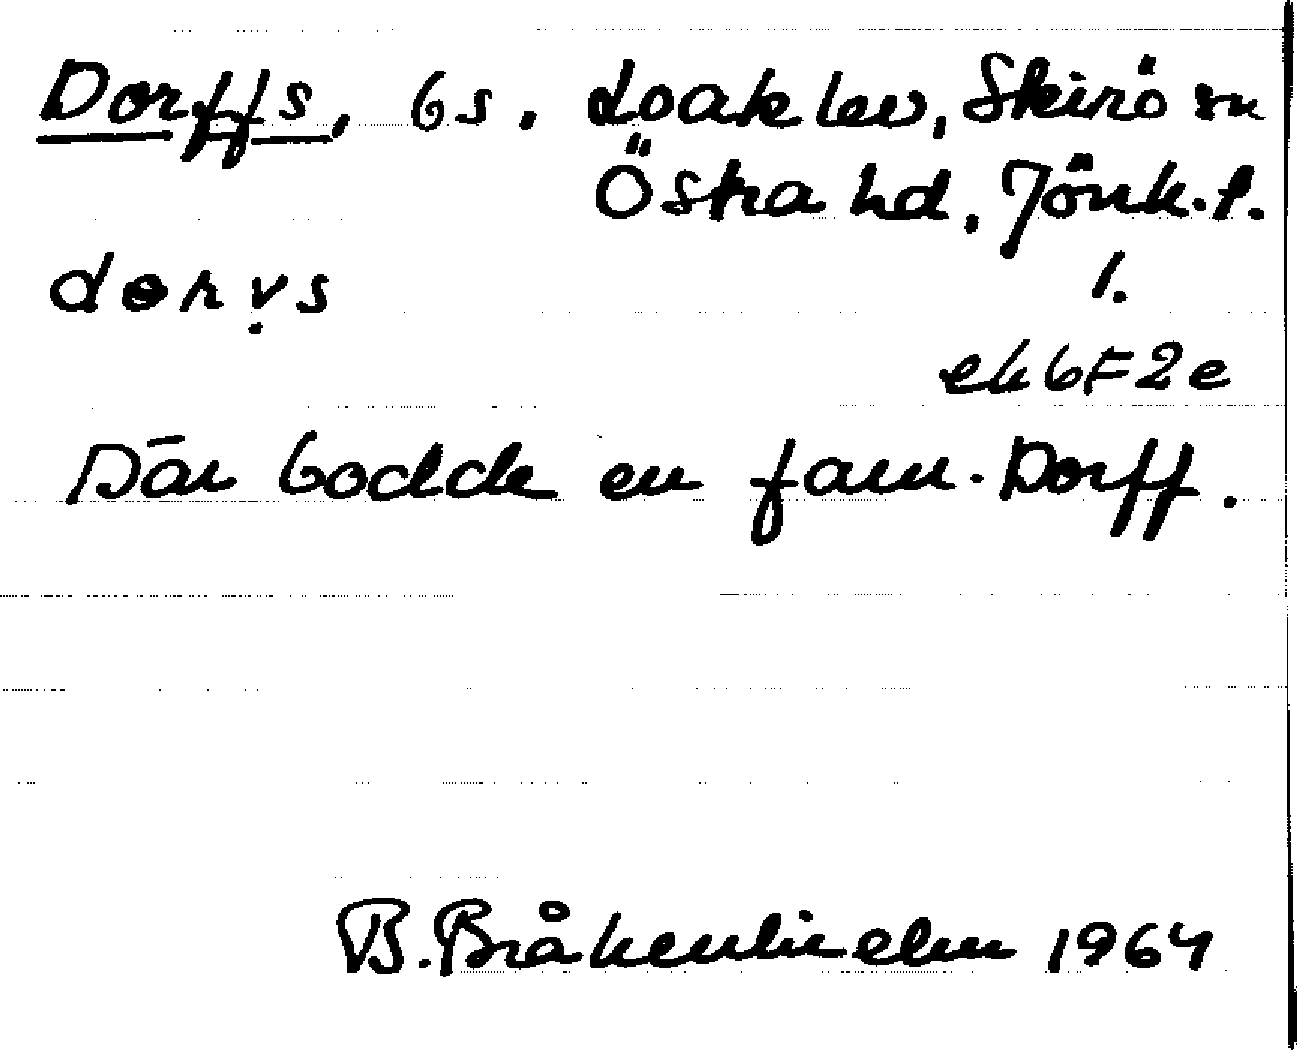 Dorffs, bs. Loaklev, Skirö sn
Östra hd, Jönk. l.
dorv̥s 1.
ek 6F2e
Där bodde en fam. Dorff.
B. Bråkenhielm 1964